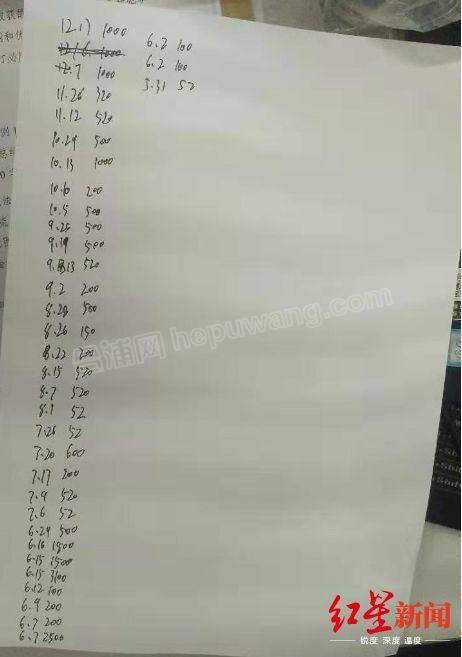 12.17 1000
12.7 1000
11.26 320
11.12 520
10.24 500
10.13 1000
10.10 200
10.5 500
9.25 500
9.19 500
9.13 520
9.2 200
8.28 500
8.26 150
8.22 200
8.15 520
8.7 520
8.1 52
7.26 52
7.20 600
7.17 200
7.9 520
7.6 52
6.24 500
6.16 1500
6.15 1500
6.15 3100
6.12 100
6.9 200
6.7 200
6.7 2500
6.2 100
6.2 100
3.31 52
合浦网 hepuwang.com
红星新闻
锐度 深度 温度